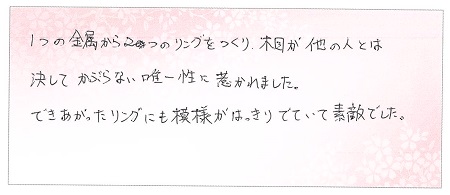 1つの金属から2つのリングをつくり、木目が他の人とは
決してかぶらない唯一性に惹かれました。
できあがったリングにも模様がはっきりでていて素敵でした。